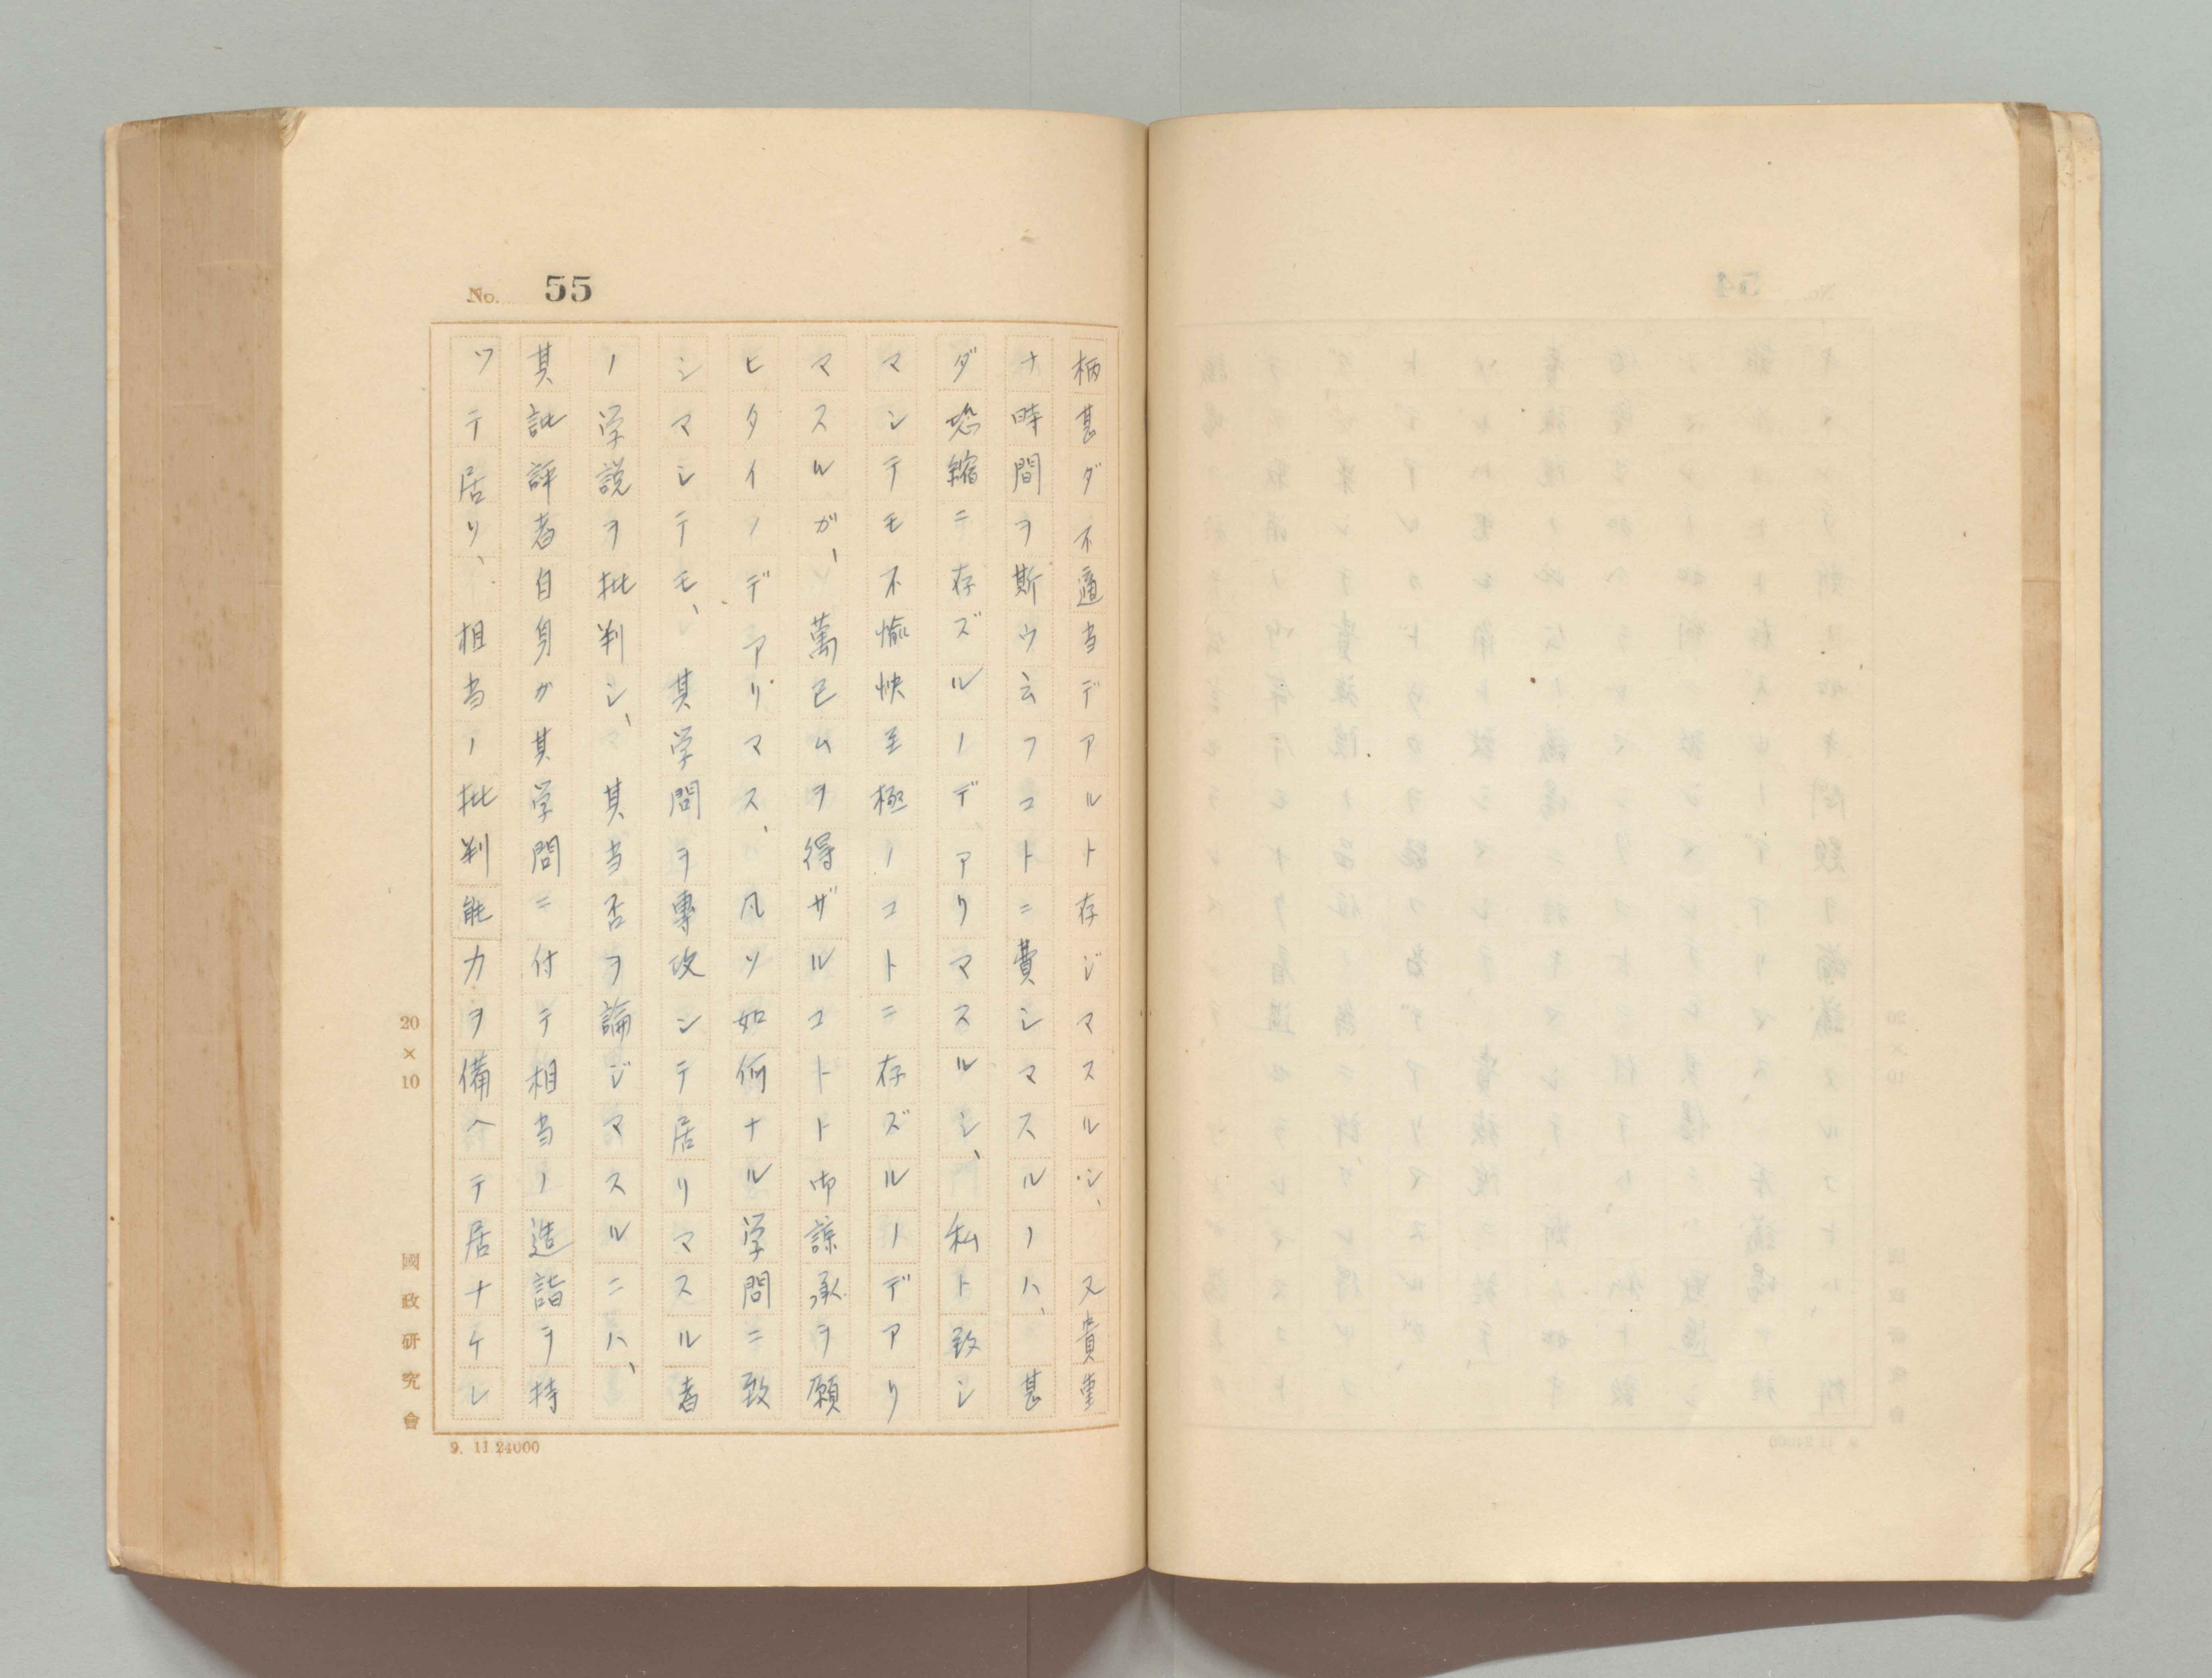 No. 55
柄甚ダ不適当デアルト存ジマスルシ、又貴重
ナ時間ヲ斯ウ云フコトニ費シマスルノハ、甚
ダ恐縮ニ存ズルノデアリマスルシ、私ト致シ
マシテモ不愉快至極ノコトニ存ズルノデアリ
マスルガ、萬已ムヲ得ザルコトト御諒承ヲ願
ヒタイノデアリマス、凡ソ如何ナル学問ニ致
シマシテモ、其学問ヲ専攻シテ居リマスル者
ノ学説ヲ批判シ、其当否ヲ論ジマスルニハ、
其批評者自身ガ其学問ニ付テ相当ノ造詣ヲ持
ツテ居リ、相当ノ批判能力ヲ備ヘテ居ナケレ
20×10
國政研究會
9. 11 24000